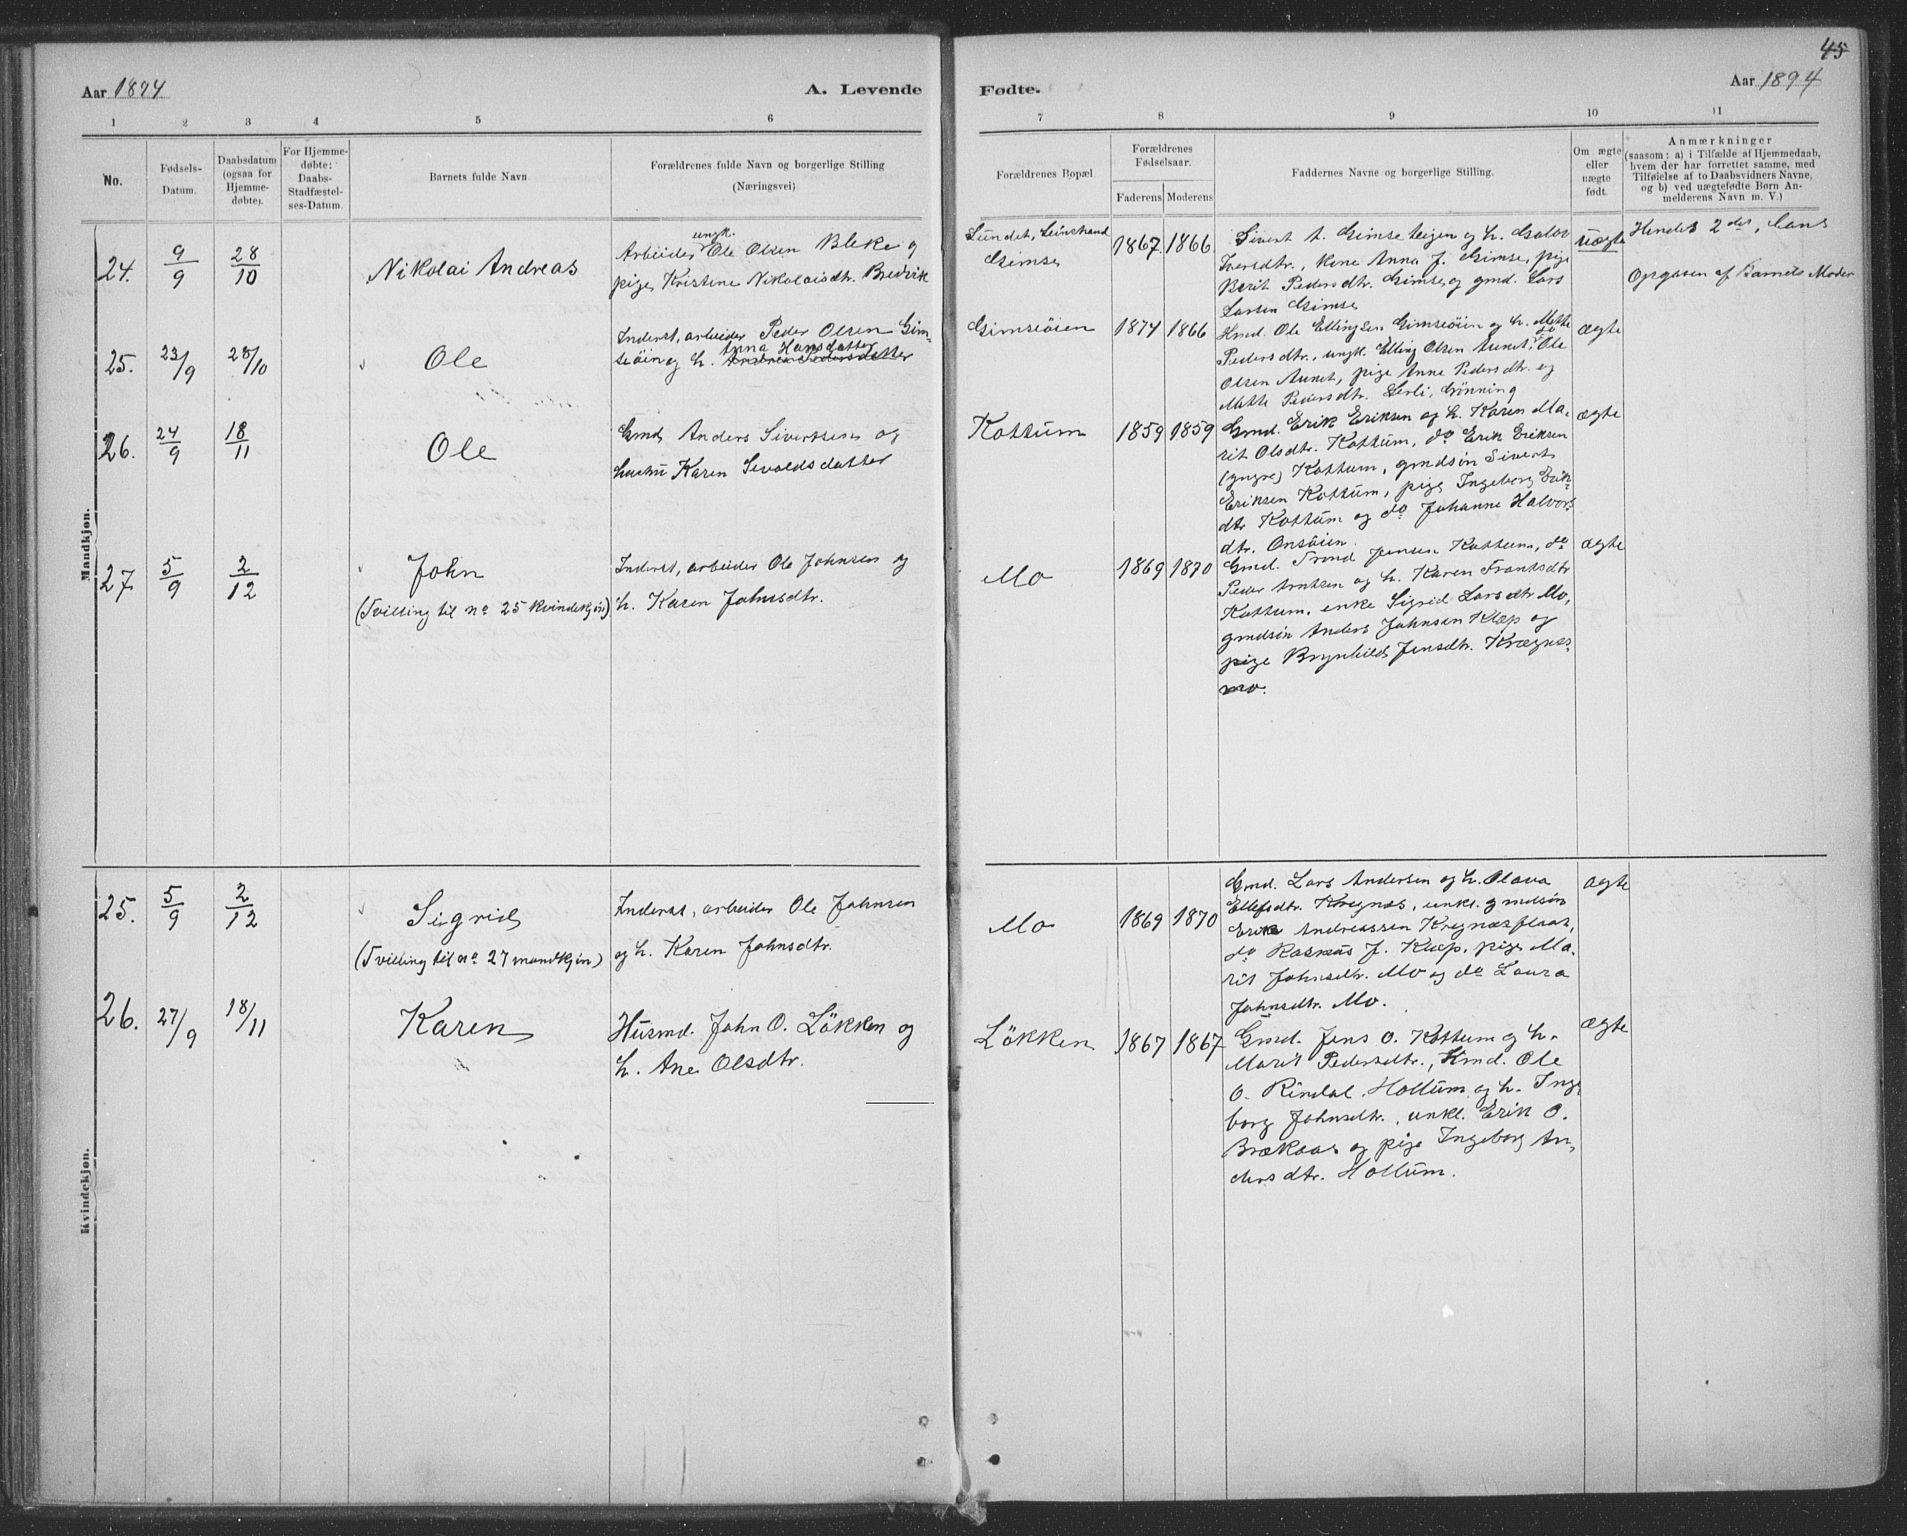 45
Aar 1894
A. Levende
Fødte.
Aar 1894
1 2 3 4 5 6
7 8 9 10 11
No.
Fødsels-
Datum.
Daabsdatum
(ogsaa for
Hjemme-
døbte).
For Hjemme-
døbte:
Daabs-
Stadfæstel-
ses-Datum.
Barnets fulde Navn.
Forældrenes fulde Navn og borgerlige Stilling
(Næringsvei)
Forældrenes Bopæl.
Forældrenes
Fødselsaar.
Faderens Moderens
Faddernes Navne og borgerlige Stilling.
Om ægte
eller
uægte
født.
Anmærkninger
(saasom: a) i Tilfælde af Hjemmedaab,
hvem der har forrettet samme, med
Tilføielse af to Daabsvidners Navne,
og b) ved uægtefødte Børn An-
melderens Navn m. V.)
Mandkjøn.
24. 9/9 28/10 Nikolai Andreas
ungk.
Arbeider Ole Olsen Bleke og
pige Kristine Nikolaisdtr. Bredvik
Gimse
1867 1866
Sivert A. Gimse og h.
Iversdtr., kone Anna J. Gimse, pige
Berit Pedersdtr. Gimse og gmd. Lars
Larsen Gimse
uægte
Hendes 2det, hans
Opgaven af Barnets Moder
25. 23/9 28/10 Ole
Inderst, arbeider Peder Olsen Gim-
Anna Hansdatter
seøien og h.
Gimseøien 1874 1866
Hmd. Ole Ellingsen Gimseøien og h. Mette
Pedersdtr., ungk. Elling Olsen Aunet, do Ole
Olsen Aunet, pige Anne Pedersdtr. og
Mette Pedersdtr. Lerli, Grønning
ægte
26. 24/9 18/11 Ole
Gmd. Anders Sivertsen og
hustru Karen Sevaldsdatter
Kottum 1859 1859
Gmd. Erik Eriksen og h. Karen Ma-
rit Olsdtr. Kottum, do Erik Eriksen
(yngre) Kottum, gmdsøn Sivert
Eriksen Kottum, pige Ingeborg Erik-
dtr Kottum og do Johanne Halvors-
dtr. Onsøien.
ægte
27. 5/9 2/12 John
(Tvilling til no 25 kvindekjøn)
Inderst, arbeider Ole Johnsen og
h. Karen Johnsdtr.
Mo 1869 1870
Gmd. Trond Jensen Kottum, do
Peder Arntsen og h. Karen Frantsdtr
Kottum, enke Sigrid Larsdtr Mo,
gmdsøn Anders Johnsen Klæp og
pige Brynhild Jensdtr. Krægnes-
mo.
ægte
Kvindekjøn.
25. 5/9 2/12 Sigrid
(Tvilling til no 27 mandkjøn)
Inderst, arbeider Ole Johnsen
og h. Karen Johnsdtr.
Mo 1869 1870
Gmd. Lars Andersen og h. Olava
Ellefsdtr. Kregnæs, unkl. gmdsøn
Erik Andreassen Kregnæsplads,
do Rasmus J. Klæp, pige Ma-
rit Johnsdtr. Mo og do Laura
Johnsdtr. Mo.
ægte
26. 27/9 18/11 Karen
Husmd. John O. Løkken og
h. Ane Olsdtr.
Løkken 1867 1867
Gmd. Jens O. Kottum og h.
Marit Pedersdtr., Hmd. Ole
O. Rindal, Hollum og h. Inge-
borg Johnsdtr., unkl. Erik O.
Brækaas og pige Ingeborg An-
dersdtr. Hollum.
ægte